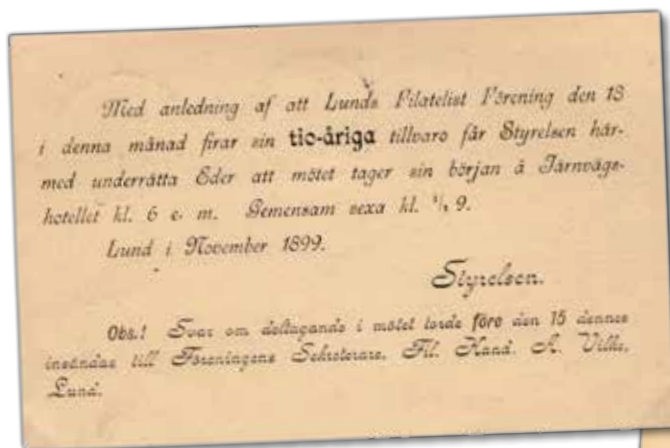 Med anledning af att Lunds Filatelist Förening den 18
i denna månad firar sin tio-åriga tillvaro får Styrelsen här-
med underrätta Eder att mötet tager sin början å Järnvägs-
hotellet kl. 6 e. m. Gemensam sexa kl. ½ 9.
Lund i November 1899.
Styrelsen.
Obs.! Svar om deltagande i mötet torde före den 15 dennes
insändas till Föreningens Sekreterare, Fil. Kand. A.
Lund.